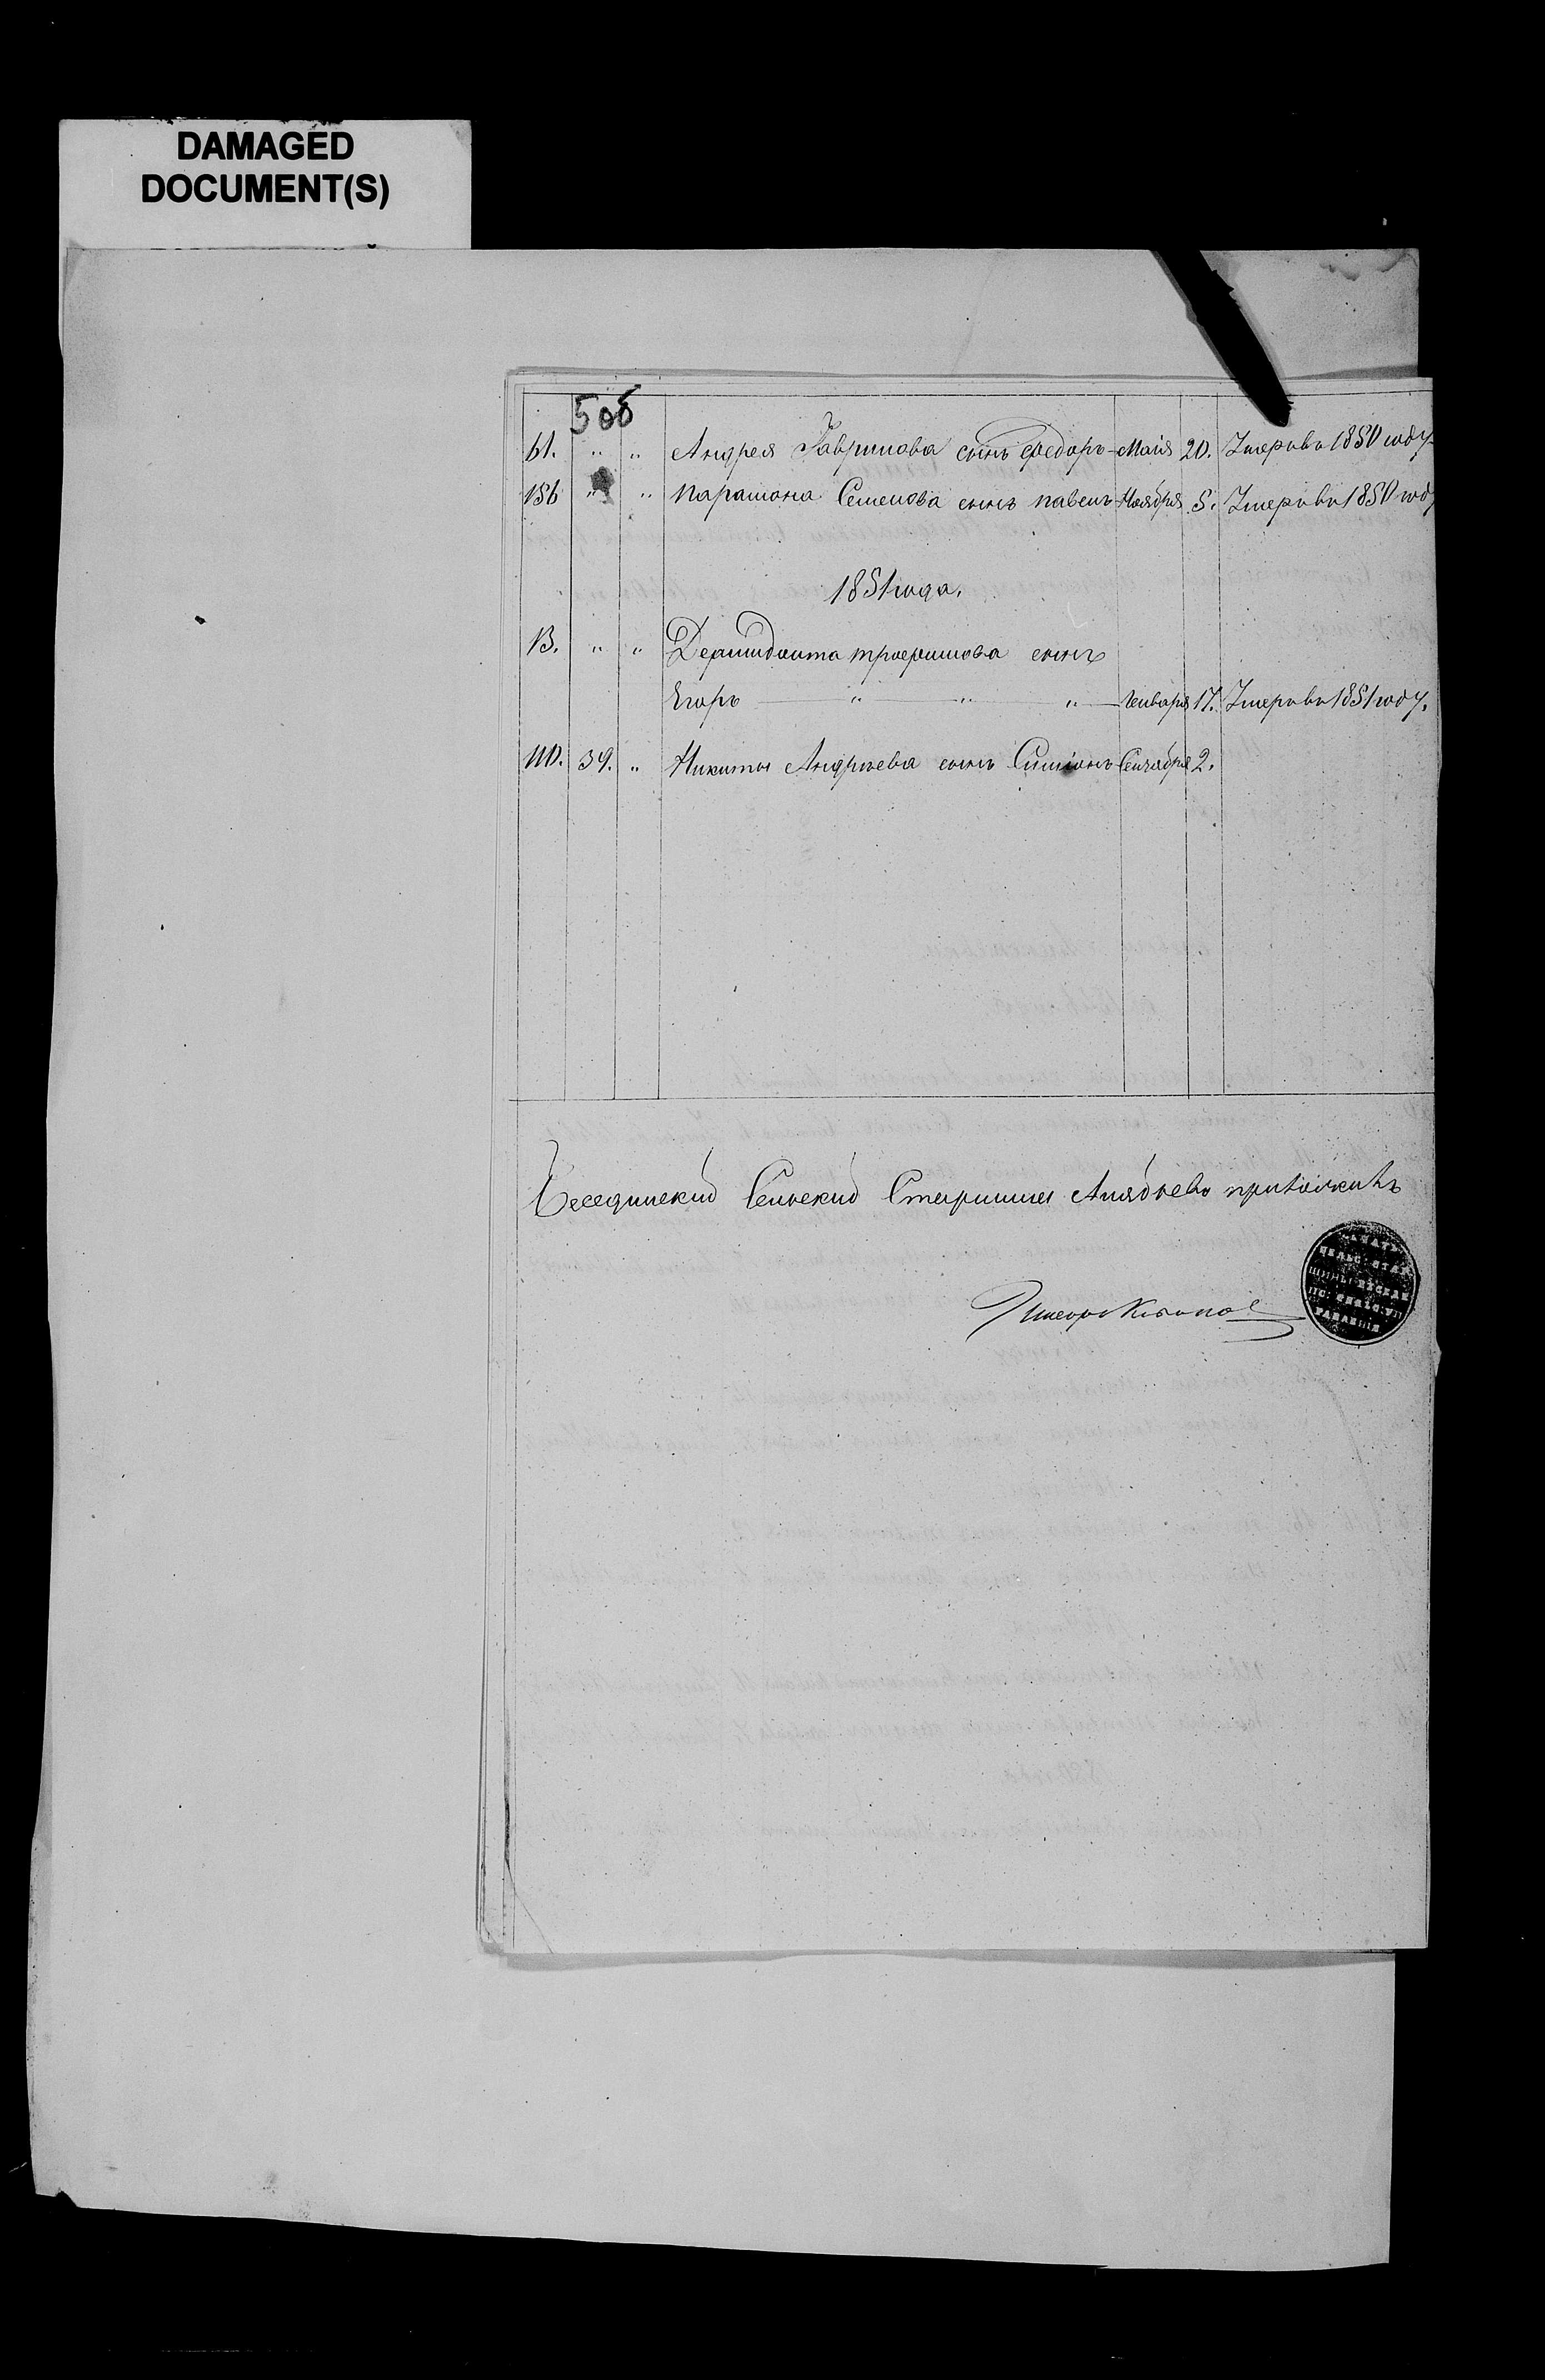 DAMAGED
DOCUMENT(S)
506
61. " " Андрея Гаврилова сынъ Федоръ - Маія 20. Умеръ въ 1850 году
156 " " Парамона Семенова сынъ павелъ Ноября 5. Умеръ въ 1850 году
1851 года.
13. " " трофимова сынъ
Егоръ " " " Генваря 17. Умеръ въ 1851 году.
110. 39. " Никиты Андрѣева сынъ Симіонъ Сентября 2.
Беседински Сельский Старшина приложилъ